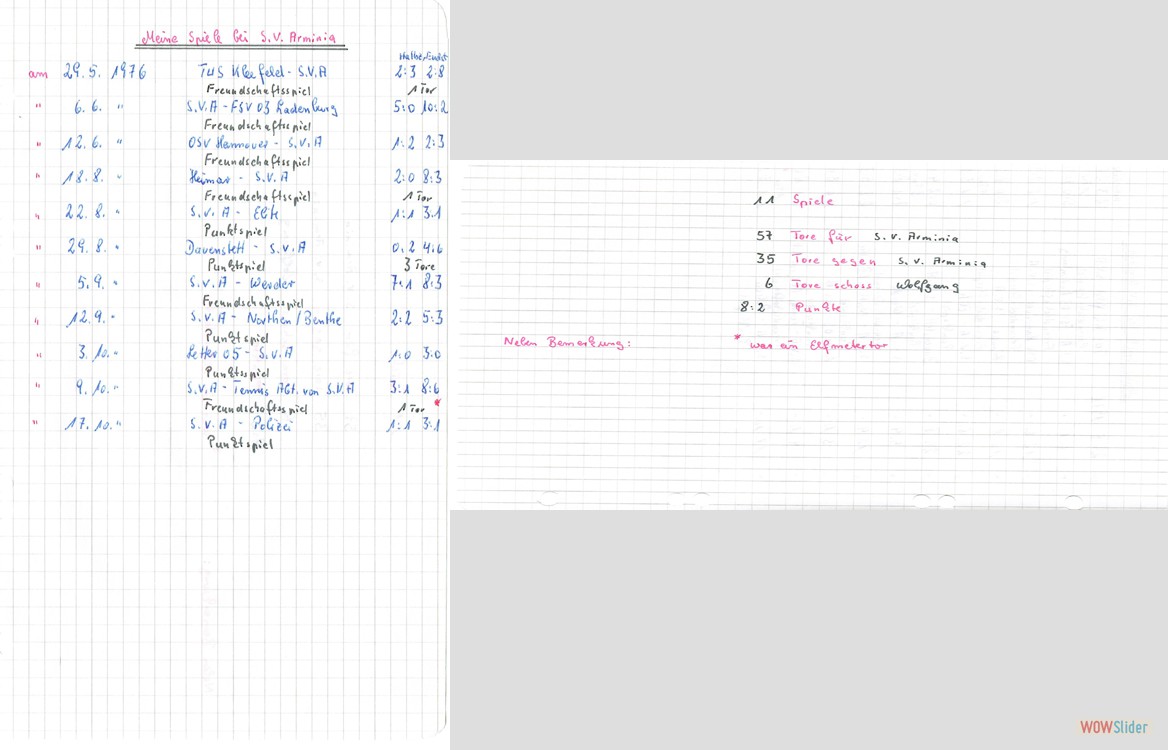 Meine Spiele bei S.V. Arminia
Halbz. Endst.
am 29.5. 1976 TUS Kleefeld - S.V.A 2:3 2:8
Freundschaftsspiel 1 Tor
" 6.6. " S.V.A - FSV 03 Ladenburg 5:0 10:2
Freundschaftsspiel
" 12.6. " OSV Hannover - S.V.A 1:2 2:3
Freundschaftsspiel
" 18.8. " Heimar - S.V.A 2:0 8:3
Freundschaftsspiel 1 Tor
" 22.8. " S.V.A - Elte 1:1 3:1
Punktspiel
" 29.8. " Davenstett - S.V.A 0:2 4:6
Punktspiel 3 Tore
" 5.9. " S.V.A - Werder 7:1 8:3
Freundschaftsspiel
" 12.9. " S.V.A - Northen/Benthe 2:2 5:3
Punktspiel
" 3.10. " Letter 05 - S.V.A 1:0 3:0
Punktspiel
" 9.10. " S.V.A - Tennis Abt. von S.V.A 3:1 8:6
Freundschaftsspiel 1 Tor *
" 17.10. " S.V.A - Polizei 1:1 3:1
Punktspiel
11 Spiele
57 Tore für S.V. Arminia
35 Tore gegen S.V. Arminia
6 Tore schoss Wolfgang
8:2 Punkte
Neben Bemerkung: * war ein Elfmetertor
WOWSlider